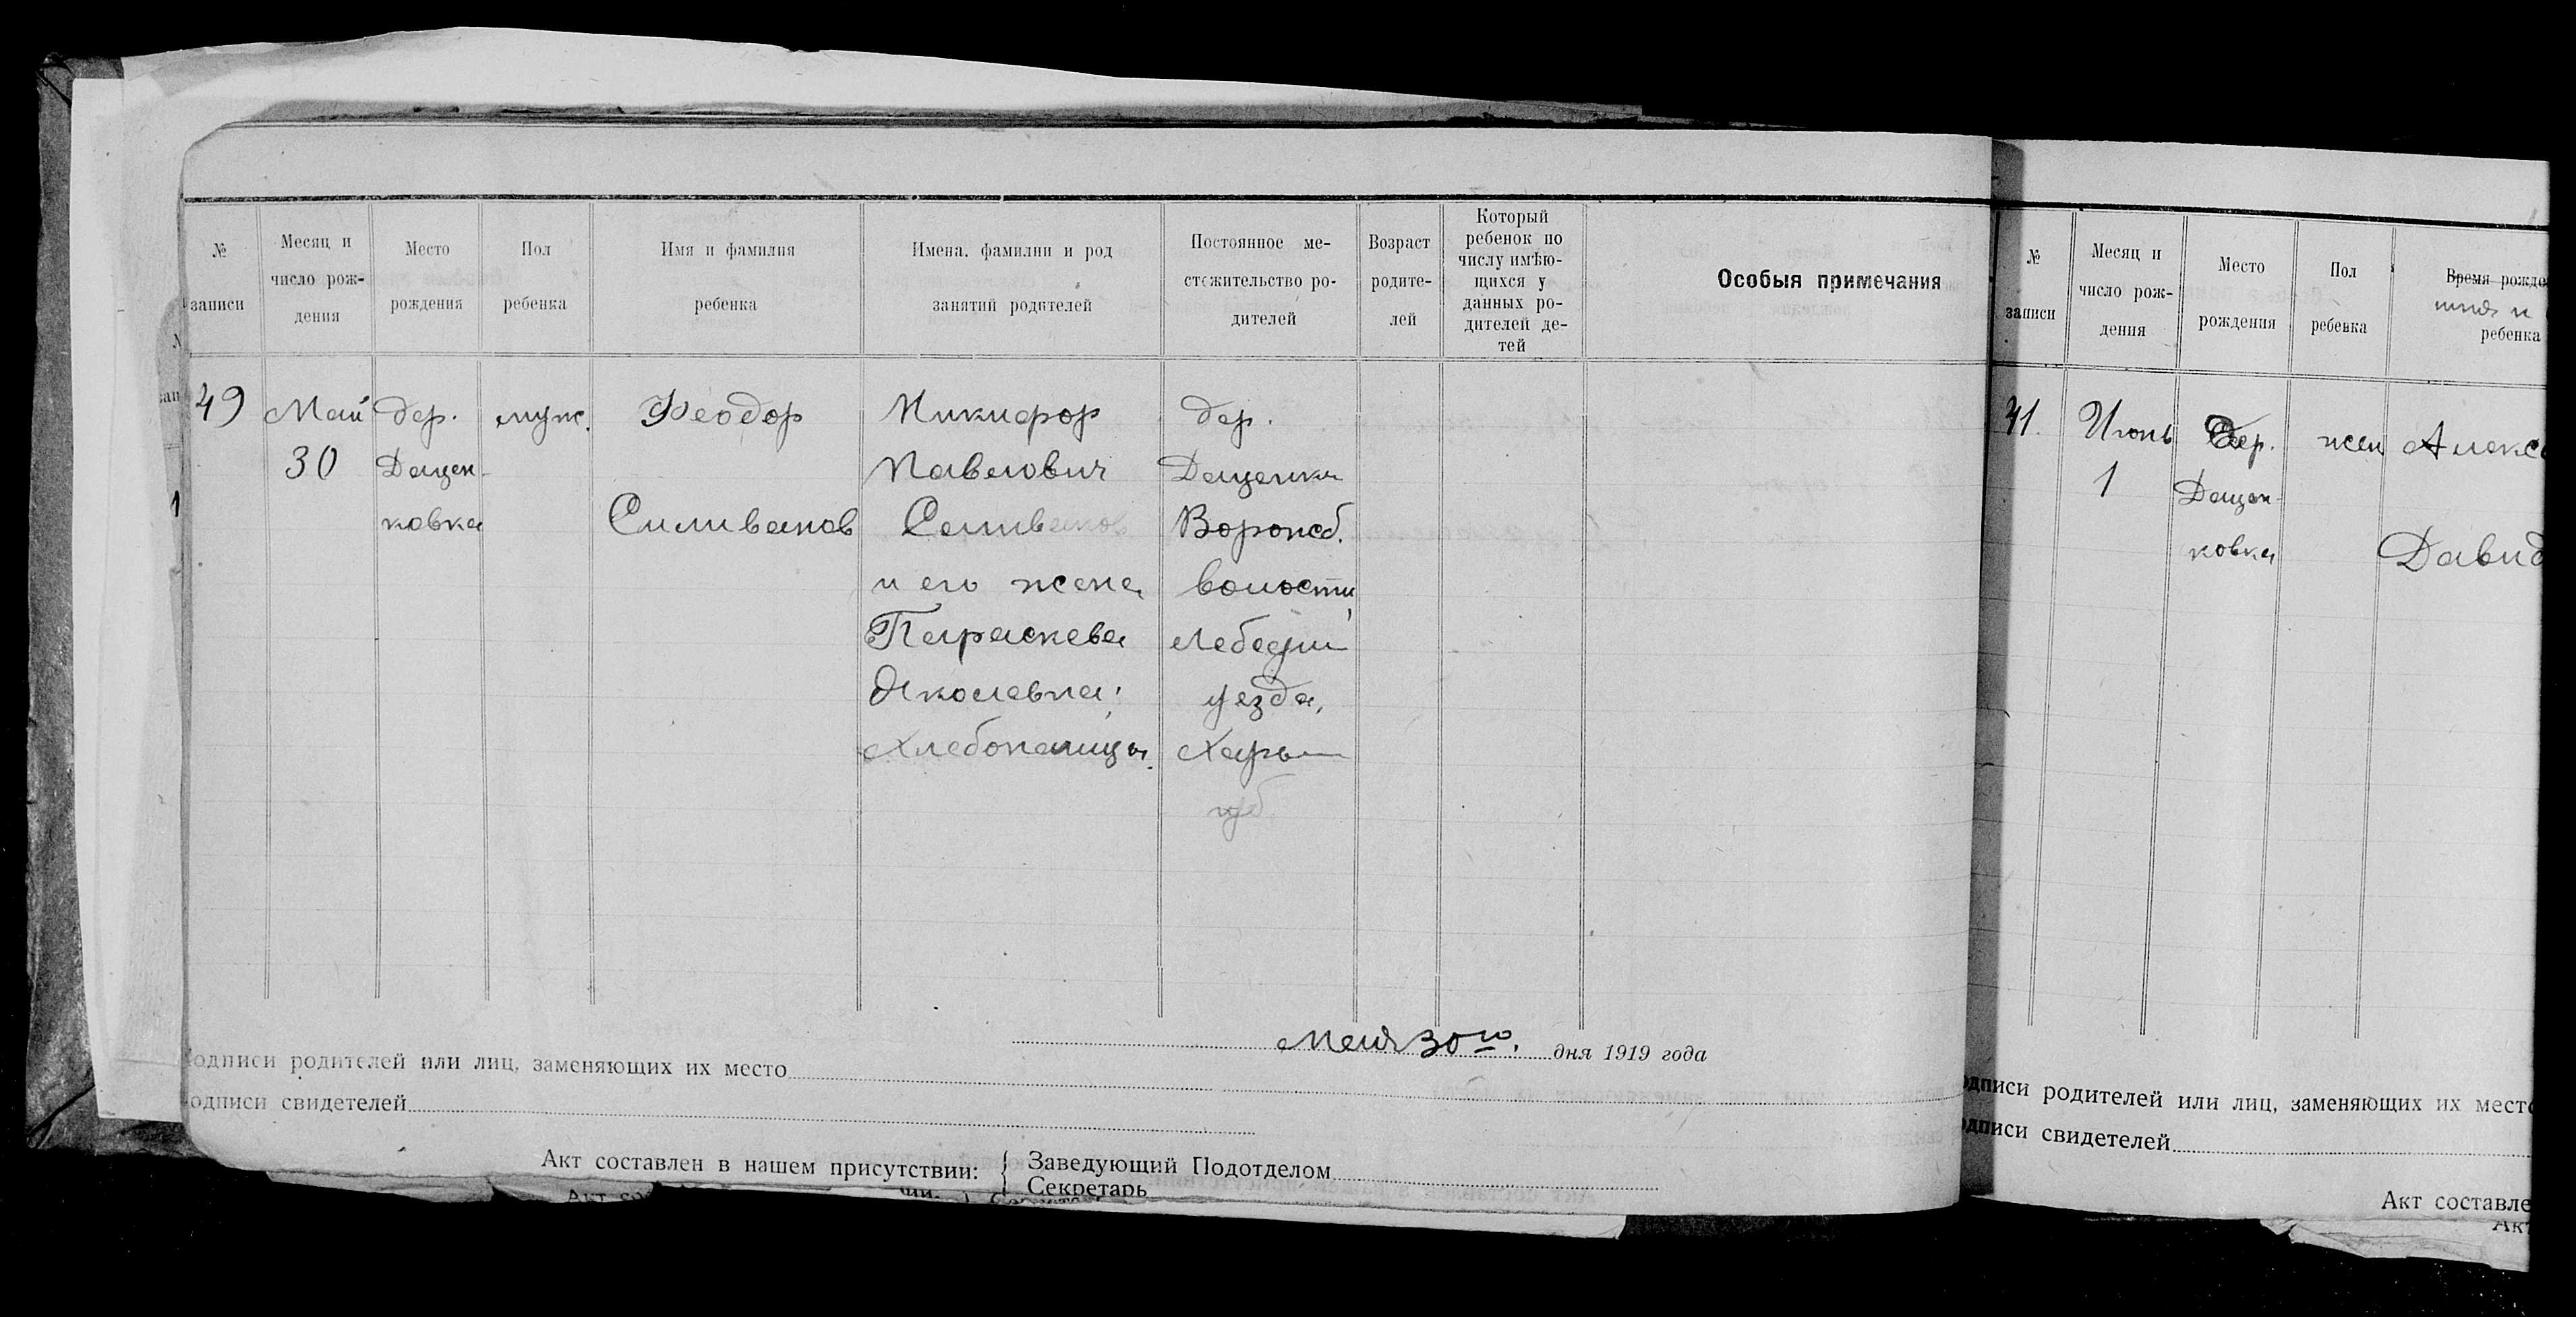 № записи
Месяц и число рож-дения
Место рождения
Пол ребенка
Имя и фамилия ребенка
Имена, фамилии и род занятий родителей
Постоянное ме-стожительство ро-дителей
Возраст родите-лей
Который ребенок по числу имѣю-щихся у данных ро-дителей де-тей
Особыя примечания
49
Май
30
дер.
Дацен-
ковка
муж.
Феодор
Силиванов
Никифор
Павлович
Селиванов
и его жена
Параскева
Яковлевна;
Хлебопашцы.
дер.
Даценки
Ворожб.
волости,
Лебедин
уезда,
Харьк
губ
Мая 30го, дня 1919 года
Подписи родителей или лиц, заменяющих их место
Подписи свидетелей
Акт составлен в нашем присутствии:
Заведующий Подотделом
Секретарь
№ записи
Месяц и число рож-дения
Место рождения
Пол ребенка
Время рожде
имя и
ребенка
Июнь
1
Дер.
Дацен-
ковка
жен
Алекс
Давид
одписи родителей или лиц, заменяющих их место
одписи свидетелей
Акт составле